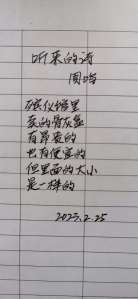 听来的诗
周鸣
殡仪馆里
卖的骨灰盒
有昂贵的
也有便宜的
但里面的大小
是一样的
2023.2.25